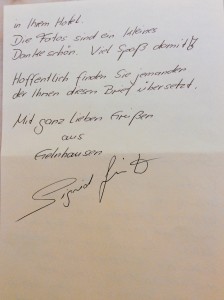 in Ihrem Hotel.
Die Fotos sind ein kleines
Dankeschön. Viel Spaß damit!
Hoffentlich finden Sie jemanden
der Ihnen diesen Brief übersetzt.
Mit ganz lieben Grüßen
aus
Gelnhausen
Sigrid